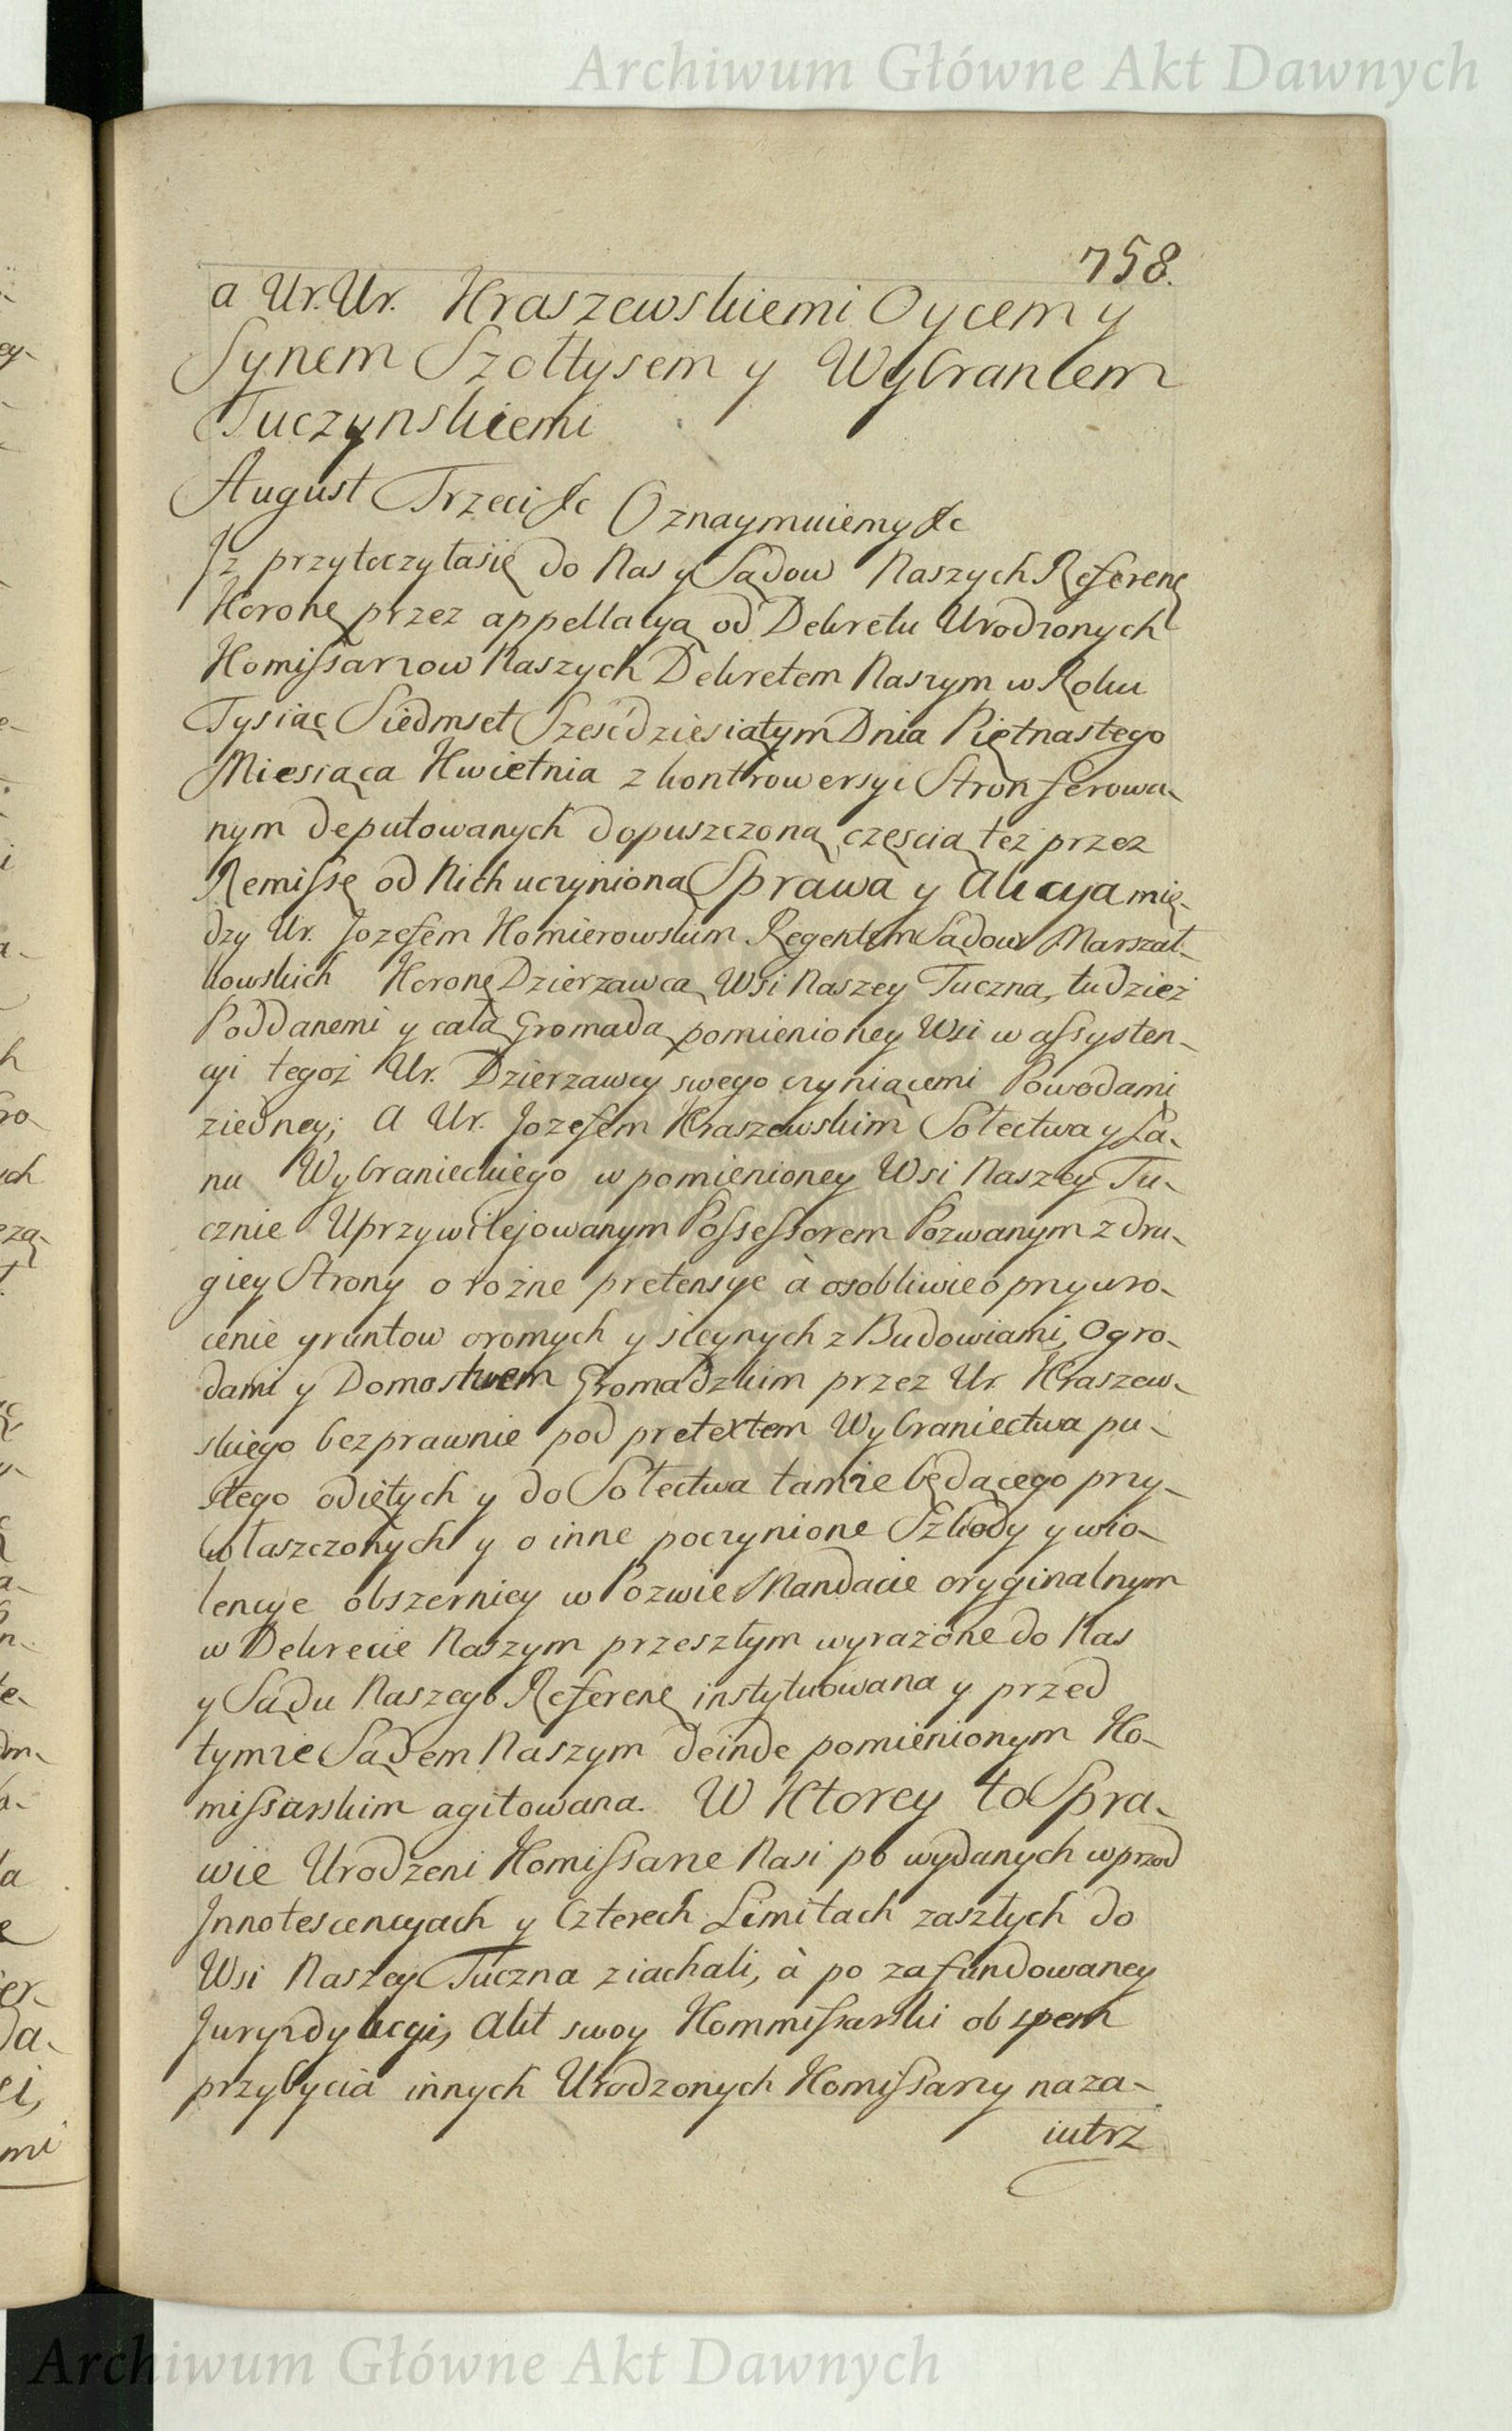 Archiwum Główne Akt Dawnych
758.
a Ur. Ur. Kraszewskiemi Oycem y
Synem Szołtysem y Wybrancem
Tuczynskiemi
August Trzeci &c Oznaymuiemy &c
Iz przytoczyłasię do Nas y Sądow Naszych Referenę
Koronę przez appellacyą od Dekretu Urodzonych
Komissarzow Naszych Dekretem Naszym w Roku
Tysiąc Siedmset Sześćdziesiątym Dnia Piętnastego
Miesiąca Kwietnia z kontrowersyi Stron ferowa-
nym deputowanych dopuszczoną częścią też przez
Remissę od Nich uczynioną Sprawa y Akcya mię-
dzy Ur. Jozefem Komierowskim Regentem Sądow Marszał-
kowskich Koronę Dzierzawcą Wsi Naszey Tuczna, tudzież
Poddanemi y całą Gromadą pomienioney Wsi w assysten-
cyi tegoż Ur. Dzierzawcy swego czyniącemi Powodami
ziedney; A Ur. Jozefem Kraszewskim Sołectwa y Ła-
nu Wybranieckiego w pomienioney Wsi Naszey Tu-
cznie Uprzywilejowanym Possessorem Pozwanym z dru-
giey Strony o rożne pretensye à osobliwie o przywro-
cenie gruntow oromych y sieynych z Budowiami, Ogro-
dami y Domostwem Gromadzkim przez Ur. Kraszew-
skiego bezprawnie pod pretextem Wybraniectwa pu-
stego odiętych y do Sołectwa tamże będącego przy-
właszczonych y o inne poczynione Szkody y wio-
lencye obszerniey w Pozwie Mandacie oryginalnym
w Dekrecie Naszym przeszłym wyrażone do Nas
y Sądu Naszego Referenę instytuowana y przed
tymże Sądem Naszym deinde pomienionym Ko-
missarskim agitowana. W Ktorey to Spra-
wie Urodzeni Komissarze Nasi po wydanych wprzod
Innotescencyach y Czterech Limitach zaszłych do
Wsi Naszey Tuczna ziachali, à po zafundowaney
Juryzdykcyi, Akt swoy Kommissarski ob spem
przybycia innych Urodzonych Komissarzy naza-
iutrz
Archiwum Główne Akt Dawnych